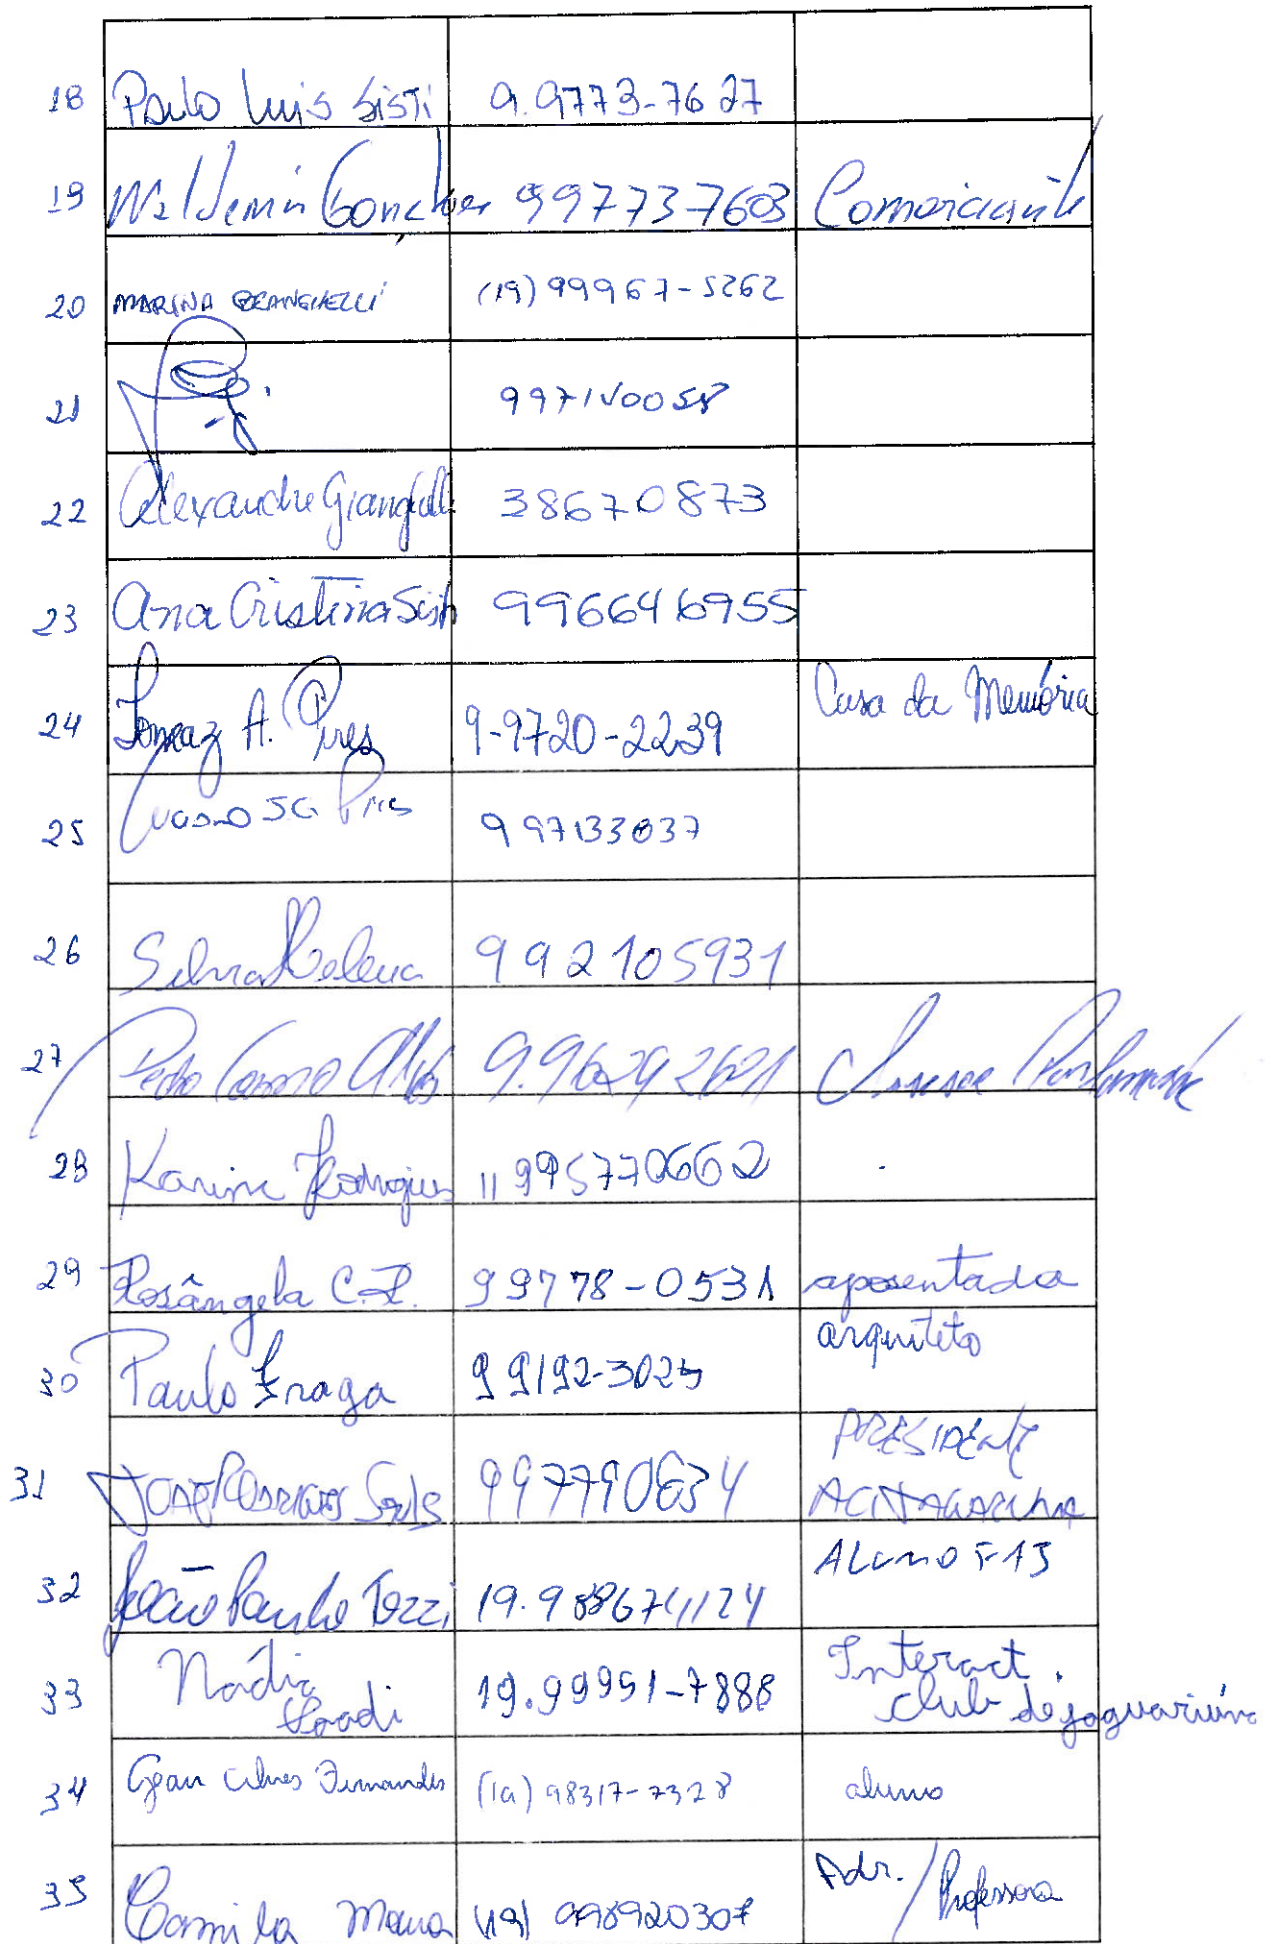 18 Paulo Luis Sisti 9.9773-7627
19 Waldemir Gonçalves 997737603 Comerciante
20 MARINA GRANGHELLI (19) 99967-5262
21 997140058
22 Alexandre Granghelli 38670873
23 Ana Cristina Sisti 996646955
24 Tomaz A. Pires 9-9720-2239 Casa da Memória
25 Pires 997133037
26 Helena 992105931
27 Pedro Alves
28 Karine Rodrigues 11 995770662
29 Rosângela C.R. 99778-0531 aposentada
30 Paulo Fraga 99192-3025 arquiteto
PRESIDENTE
31 Rodrigues 997790634
32 João Paulo Tozzi Aluno
33 Nádia 19.99951-7888 Interact
club de jaguariúna
34 Alves Fernandes (19) 98317-7328 aluno
35 Camila (19) 998920307 Adr. / Professora